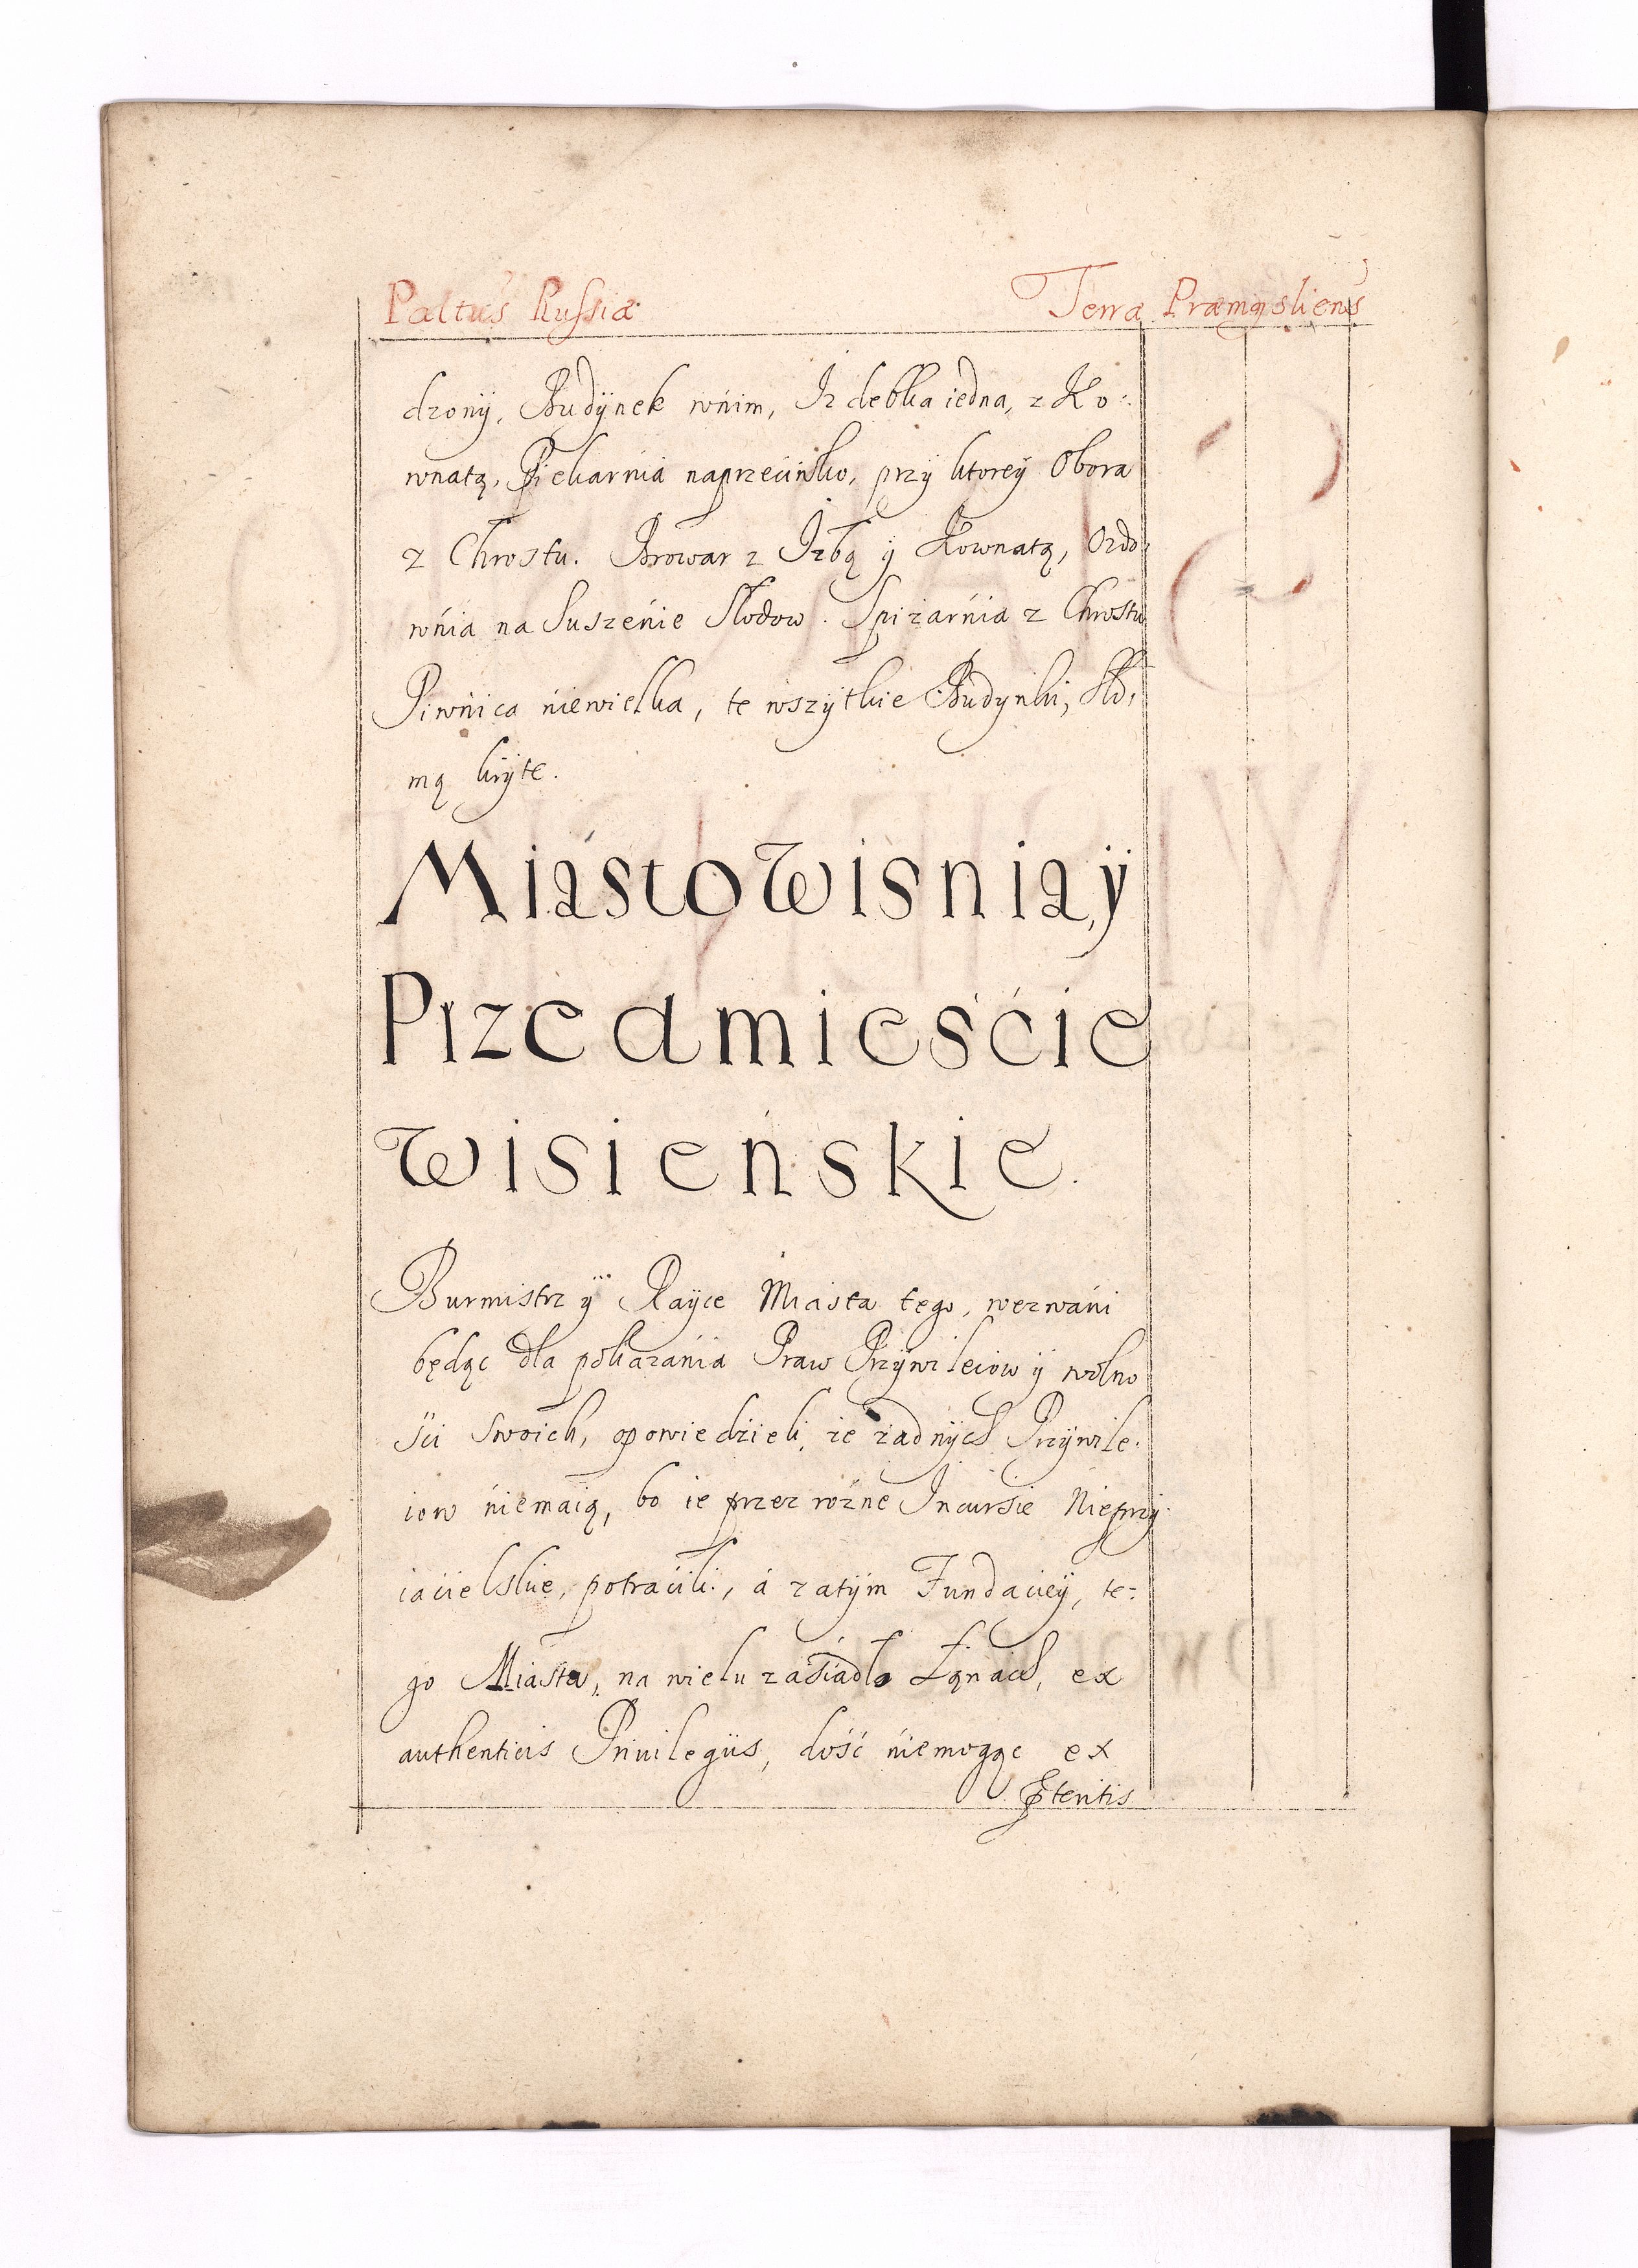 Paltus Russiæ Terra Præmysliens
dzonÿ, Budÿnek wńim, Izdebka iedna, z Ko:
wnatą, Piekarnia naprzećiwko, przÿ ktoreÿ Obora
z Chrostu. Browar z Izbą ÿ Kownatą, Ozdo:
wńia na Suszeńie Słodow. Spiżarńia z Chrostu
Piwńica ńiewielka, te wszÿtkie Budynki, Sło:
mą krÿte.
Miasto Wisnia, ÿ
Przedmieśćie
Wisieńskie.
Burmistrz ÿ Rayce Miasta tego, wezwańi
będąc dla pokazańia Praw Przÿwileiow ÿ wolno
śći swoich, opowiedźieli, że żadnÿch Przÿwile:
iow ńiemaią, bo ie przez rożne Incursie Nieprzÿ:
iaćielskie, potraćili, á zatÿm Fundacieÿ, te:
go Miasta, na wielu zaśiadło Łąnach, ex
authenticis Priuilegiis, dość ńiemogąc ex